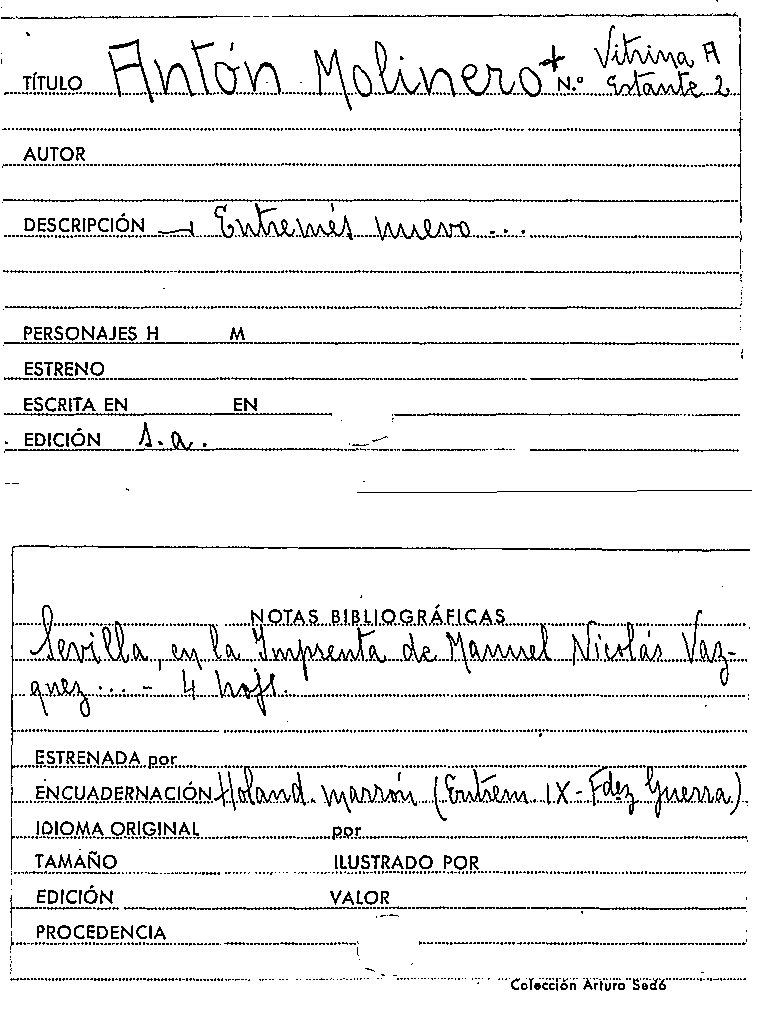 TÍTULO Antón Molinero + N.º Vitrina A
Estante 2
AUTOR
DESCRIPCIÓN Entremés nuevo...
PERSONAJES H M
ESTRENO
ESCRITA EN EN
EDICIÓN s.a.
NOTAS BIBLIOGRÁFICAS
Sevilla, en la Imprenta de Manuel Nicolás Vaz-
quez... - 4 hojs.
ESTRENADA por
ENCUADERNACIÓN Holand. marrón (Entrem. IX - Fdez Guerra)
IDIOMA ORIGINAL por
TAMAÑO ILUSTRADO POR
EDICIÓN VALOR
PROCEDENCIA
Colección Arturo Sedó